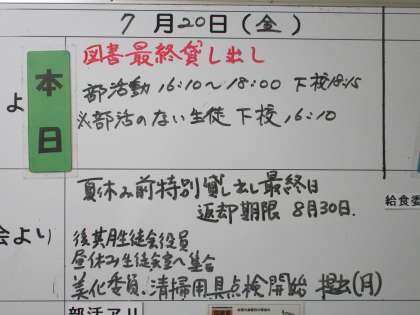 7月20日(金)
本日
図書最終貸し出し
部活動 16:10~18:00 下校18:15
よ
※部活のない生徒 下校 16:10
夏休み前特別貸し出し最終日
返却期限 8月30日.
給食委
会より
後期生徒会役員
昼休み生徒会室へ集合
美化委員.清掃用具点検開始 提出(月)
部活アリ